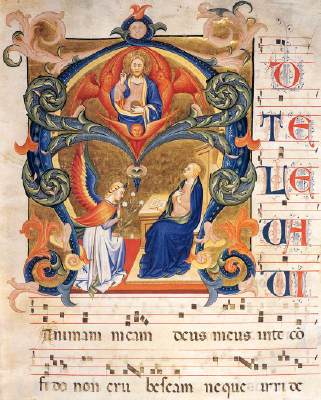 D
TE
LE
UA
UI
Animam meam deus meus in te cō
fido non eru bescam neque irri de